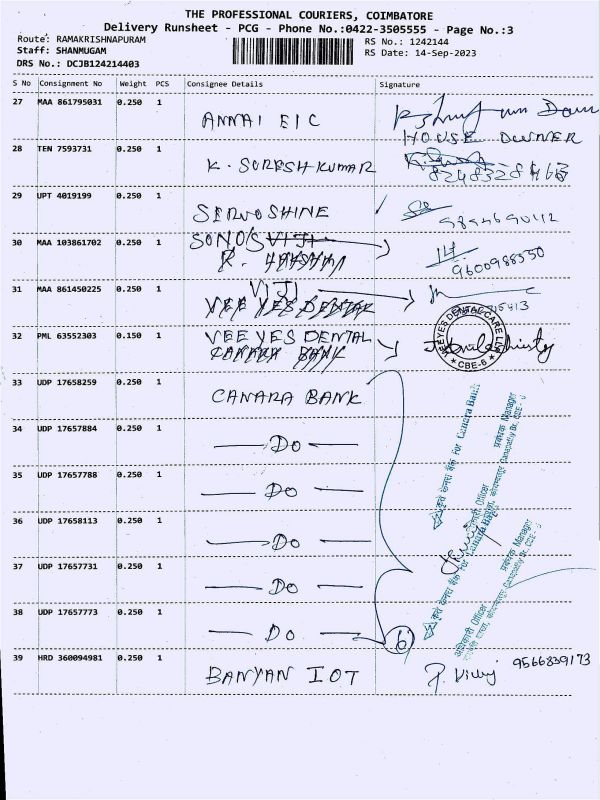 THE PROFESSIONAL COURIERS, COIMBATORE
Delivery Runsheet - PCG - Phone No.:0422-3505555 - Page No.:3
Route: RAMAKRISHNAPURAM
RS No.: 1242144
Staff: SHANMUGAM
RS Date: 14-Sep-2023
DRS No.: DCJB124214403
S No Consignment No Weight PCS Consignee Details Signature
27 MAA 861795031 0.250 1 ANNAI EIC
HOUSE OWNER
28 TEN 7593731 0.250 1 K. SURESHKUMAR
8248328463
29 UPT 4019199 0.250 1 SERVOSHINE
9894690112
30 MAA 103861702 0.250 1 SONO'S VIJI
9600988550
31 MAA 861450225 0.250 1 VIJI
VEE YES DENTAL
32 PML 63552303 0.150 1 VEE YES DENTAL
CANARA BANK
VEEYES DENTAL CARE
CBE-6
33 UDP 17658259 0.250 1 CANARA BANK
34 UDP 17657884 0.250 1 Do
35 UDP 17657788 0.250 1 Do
36 UDP 17658113 0.250 1 Do
37 UDP 17657731 0.250 1 Do
38 UDP 17657773 0.250 1 Do
6
कृते केनरा बैंक For Canara Bank
प्रबंधक Manager
कृते केनरा बैंक For Canara Bank
अधिकारी Officer
प्रबंधक Manager
39 HRD 360094981 0.250 1 BANYAN IOT
9566839173